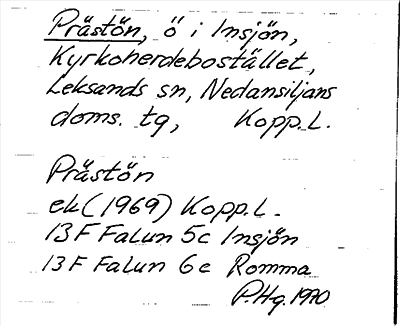 Prästön, ö i Insjön,
Kyrkoherdebostället,
Leksands sn, Nedansiljans
doms. tg, Kopp.L.
Prästön
ek (1969) Kopp.L.
13 F Falun 5c Insjön
13 F Falun 6c Romma
P.Hg. 1990